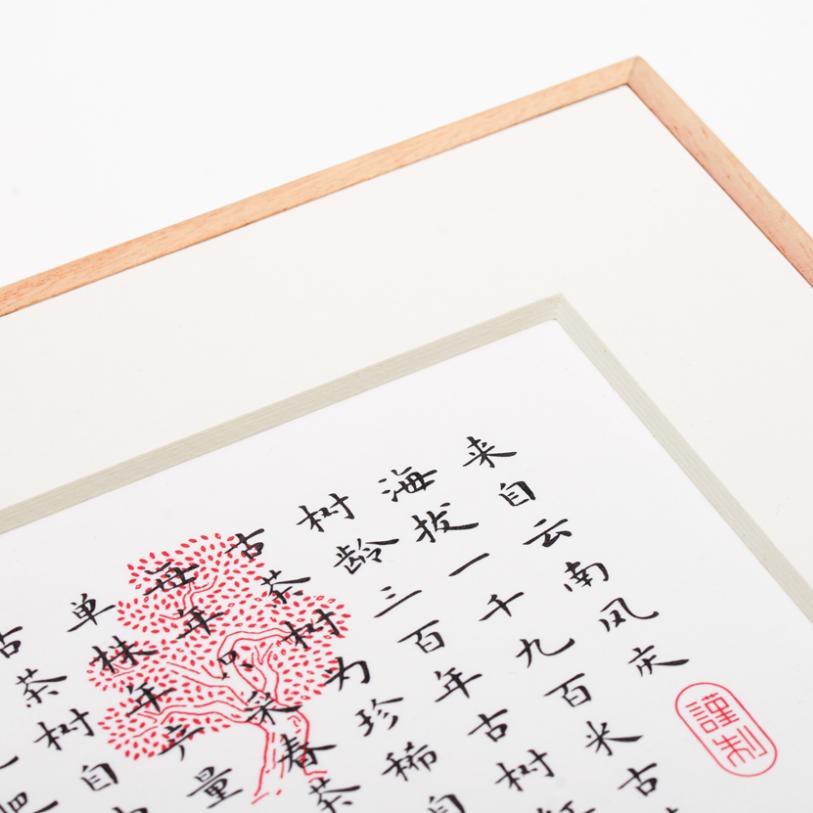 来自云南风庆
海拔一千九百米古
树龄三百年古树
古茶树为珍稀自
每年只采春茶
单株年产量
古茶树自
謹制